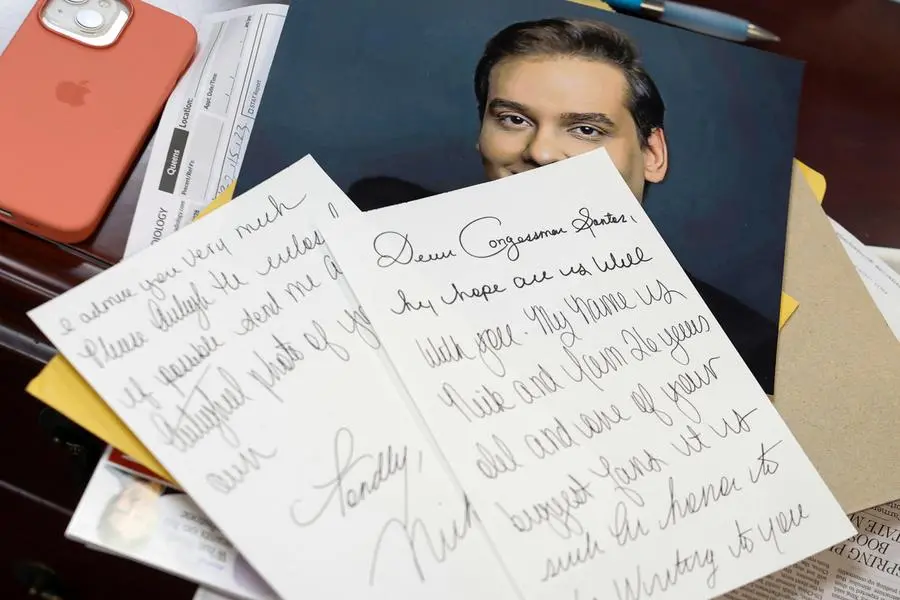 I admire you very much
Please the enclos
if possible send me a
photo of yo
own
Fondly,
Nick
Dear Congessman Santos,
My hope all is well
with you. My Name is
Nick and I am 26 years
old and one of your
biggest fans it is
such an honor to
Writing to you
Location:
Queens
Appt. Date/Time
STAT Report
IOLOGY
SPRING P
BOOS
STATE M